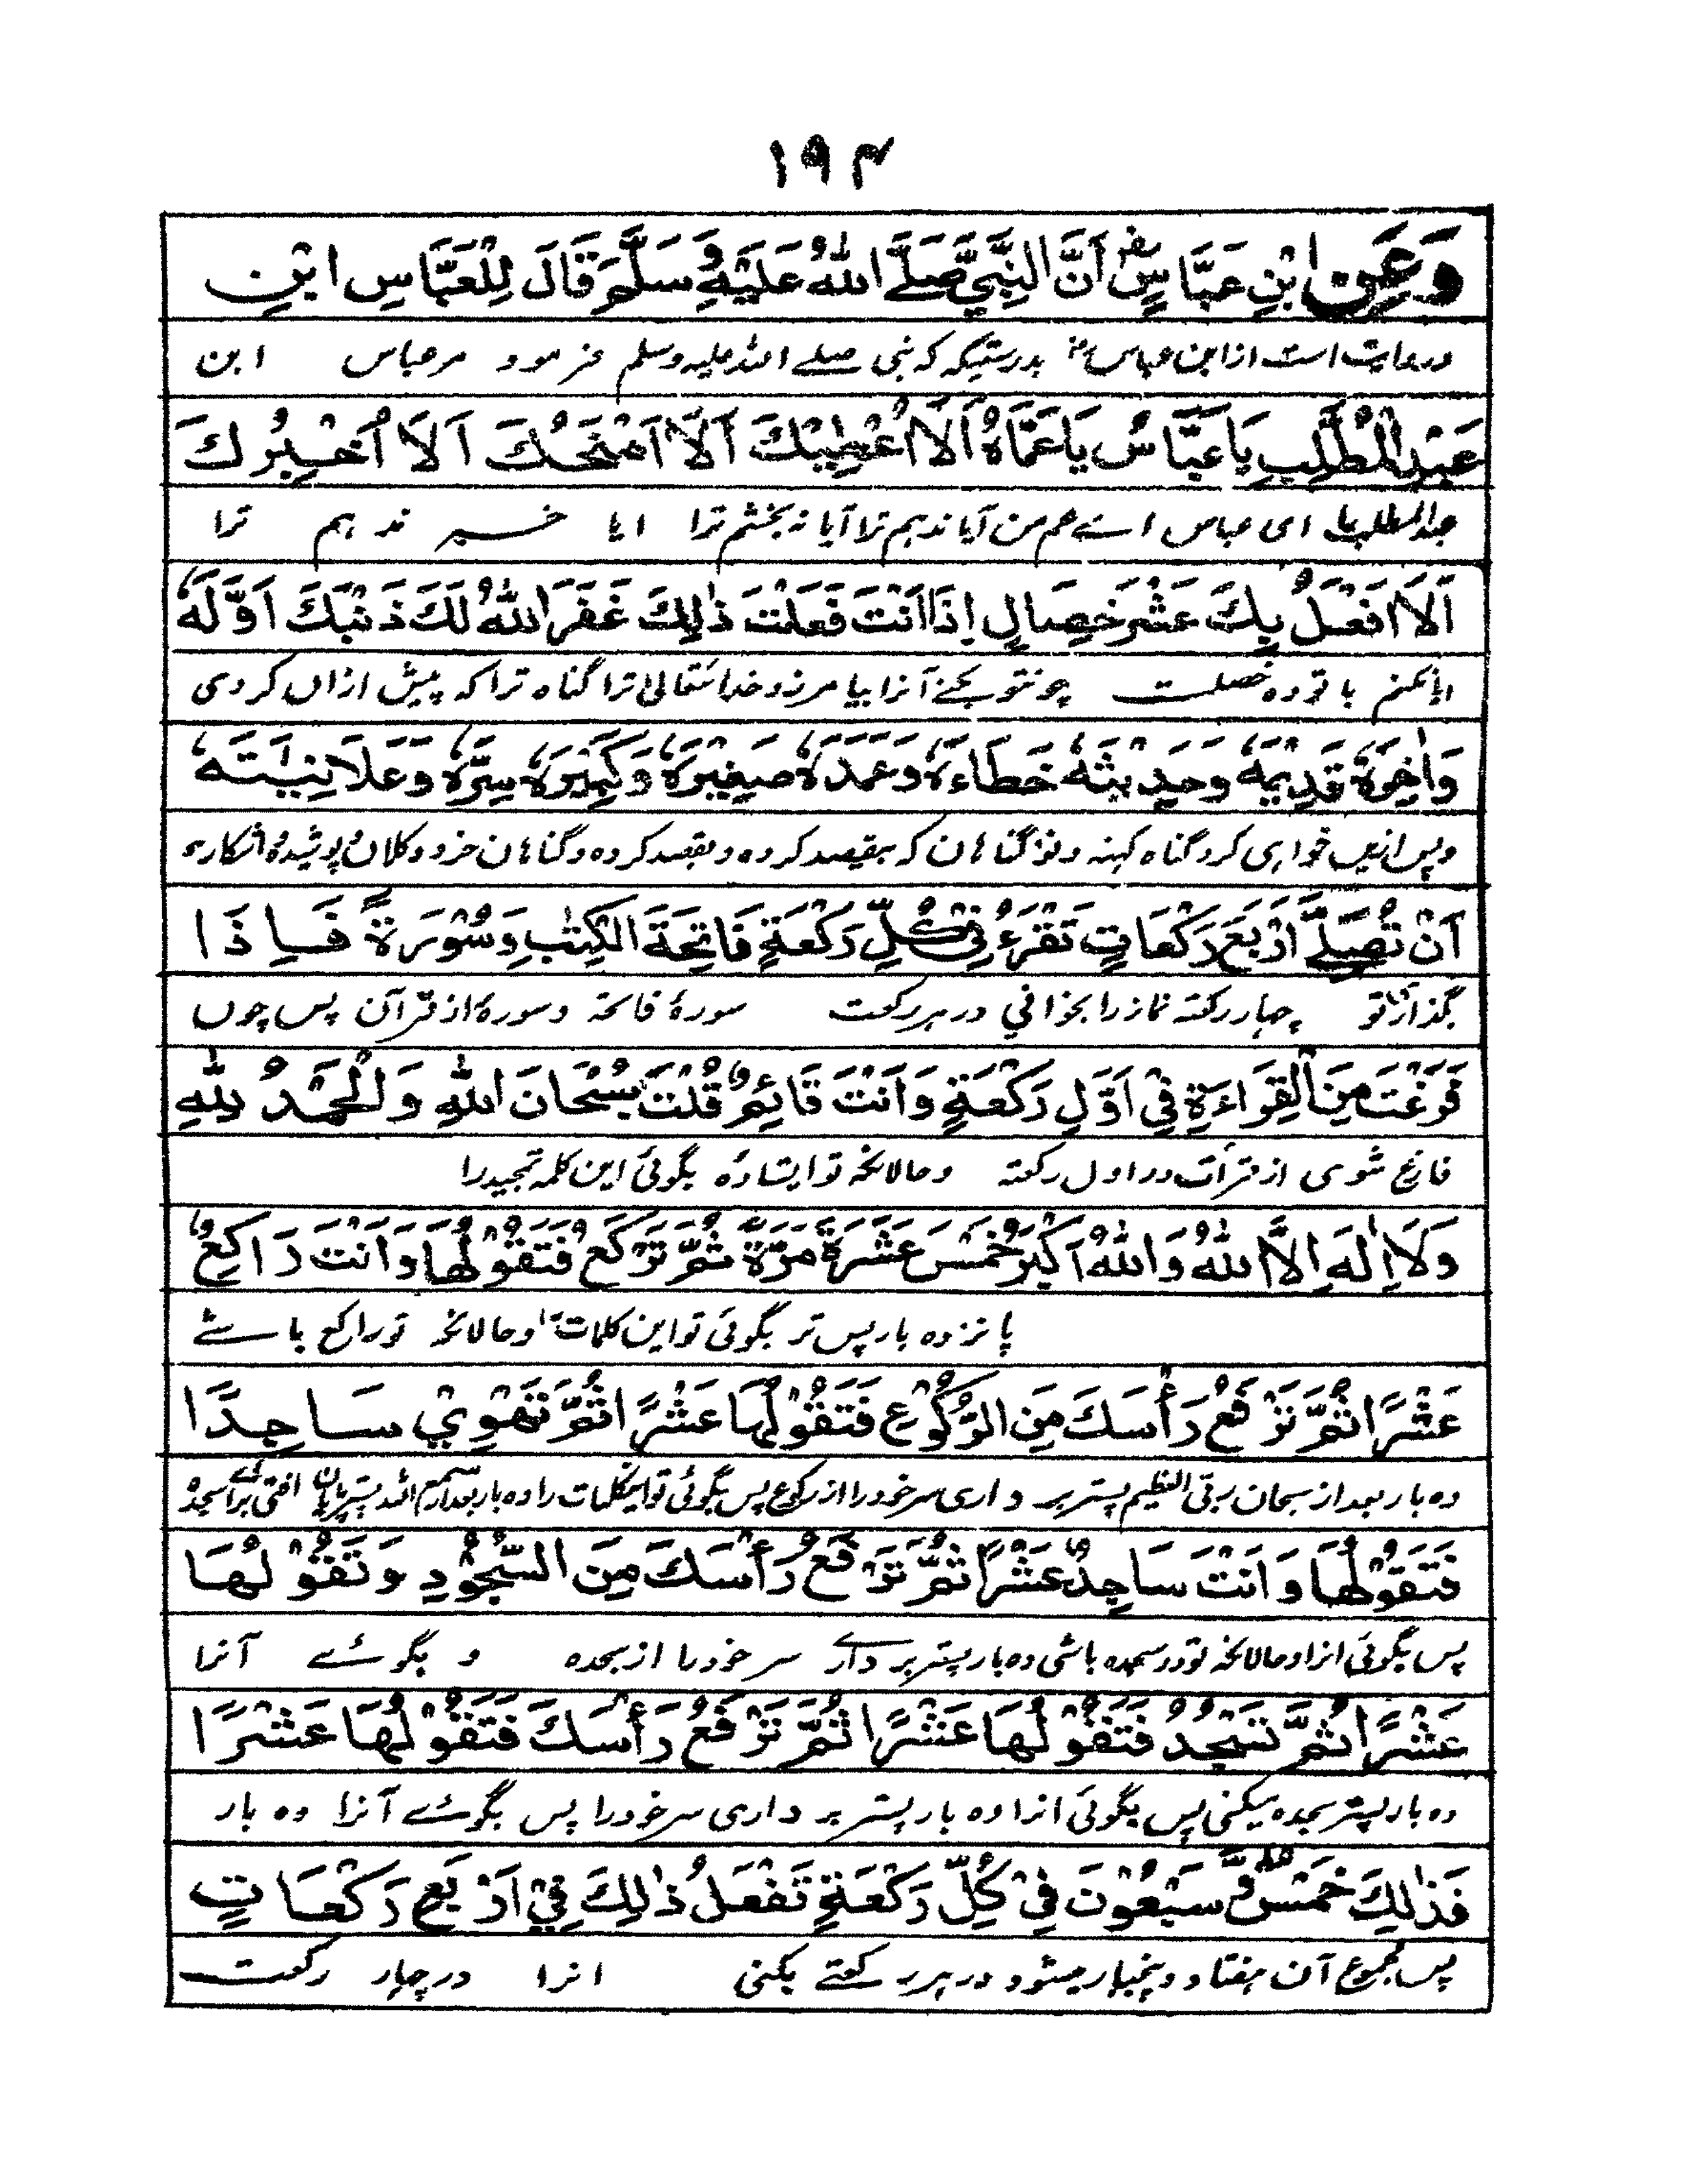 ۱۹۴
وَعَنِ ابْنِ عَبَّاسٍ رض اَنَّ النَّبِيَّ صَلَّے اللّٰهُ عَلَيْهِ وَسَلَّمَ قَالَ لِلْعَبَّاسِ ابْنِ
وروایت است از ابن عباس رض بدرستیکه که نبی صلے الله علیه وسلم فرمود مر عباس ابن
عَبْدِ الْمُطَّلِبِ يَا عَبَّاسُ يَا عَمَّاهُ اَلَا اُعْطِيْكَ اَلَا اَمْنَحُكَ اَلَا اُخْبِرُكَ
عبد المطلب یا ای عباس اے عم من آیا ندهم ترا آیا نه بخشم ترا ایا خبر ندهم ترا
اَلَا اَفْعَلُ بِكَ عَشْرَ خِصَالٍ اِذَا اَنْتَ فَعَلْتَ ذٰلِكَ غَفَرَ اللّٰهُ لَكَ ذَنْبَكَ اَوَّلَهٗ
ایا نکنم با تو ده خصلت چونتو بکنے آنرا بیامرزد خدائتعالیٰ ترا گناه ترا که پیش ازاں کردی
وَاٰخِرَهٗ قَدِيْمَهٗ وَحَدِيْثَهٗ خَطَاءَهٗ وَعَمَدَهٗ صَغِيْرَهٗ وَكَبِيْرَهٗ سِرَّهٗ وَعَلَانِيَتَهٗ
وپس ازیں خواہی کرد گناه کهنه ونو گناهان که بیقصد کرده وبقصد کرده وگناهان خرد وکلان پوشیده واشکاره
اَنْ تُصَلِّےَ اَرْبَعَ رَكْعَاتٍ تَقْرَءُ فِيْ كُلِّ رَكْعَةٍ فَاتِحَةَ الْكِتٰبِ وَسُوْرَةً فَاِذَا
بگذاری تو چهار رکعته نماز را بخوانی در هر رکعت سورهٔ فاتحة وسورهٔ از قرآن پس چوں
فَرَغْتَ مِنَ الْقِرَاءَةِ فِيْ اَوَّلِ رَكْعَةٍ وَاَنْتَ قَائِمٌ قُلْتَ سُبْحَانَ اللّٰهِ وَالْحَمْدُ لِلّٰهِ
فارغ شوی از قرأت در اول رکعته وحالانکه تو ایستاده بگوئی این کلمه تمجید را
وَلَا اِلٰهَ اِلَّا اللّٰهُ وَاللّٰهُ اَكْبَرُ خَمْسَ عَشَرَةَ مَرَّةً ثُمَّ تَرْكَعُ فَتَقُوْلُهَا وَاَنْتَ رَاكِعٌ
پانزده بار پس تر بگوئی تو این کلمات را وحالانکه تو راکع باشے
عَشْرًا ثُمَّ تَرْفَعُ رَأْسَكَ مِنَ الرُّكُوْعِ فَتَقُوْلُهَا عَشْرًا ثُمَّ تَهْوِيْ سَاجِدًا
ده بار بعد از سبحان ربی العظیم پستر بر داری سر خود را از رکوع پس بگوئی تو اینکلمات را ده بار بعد از سمع الله پستر افتی برائے سجده
فَتَقُوْلُهَا وَاَنْتَ سَاجِدٌ عَشْرًا ثُمَّ تَرْفَعُ رَأْسَكَ مِنَ السُّجُوْدِ وَتَقُوْلُهَا
پس بگوئی انرا وحالانکه تو در سجده باشی ده بار پستر بر دارے سر خود را از سجده و بگوئے آنرا
عَشْرًا ثُمَّ تَسْجُدُ فَتَقُوْلُهَا عَشْرًا ثُمَّ تَرْفَعُ رَأْسَكَ فَتَقُوْلُهَا عَشْرًا
ده بار پستر سجده میکنی پس بگوئی انرا ده بار پستر بر داری سر خود را پس بگوئے آنرا ده بار
فَذٰلِكَ خَمْسٌ وَّسَبْعُوْنَ فِيْ كُلِّ رَكْعَةٍ تَفْعَلُ ذٰلِكَ فِيْ اَرْبَعِ رَكْعَاتٍ
پس مجموع آن هفتاد وپنجبار میشود در هر رکعتے بکنی انرا در چهار رکعت